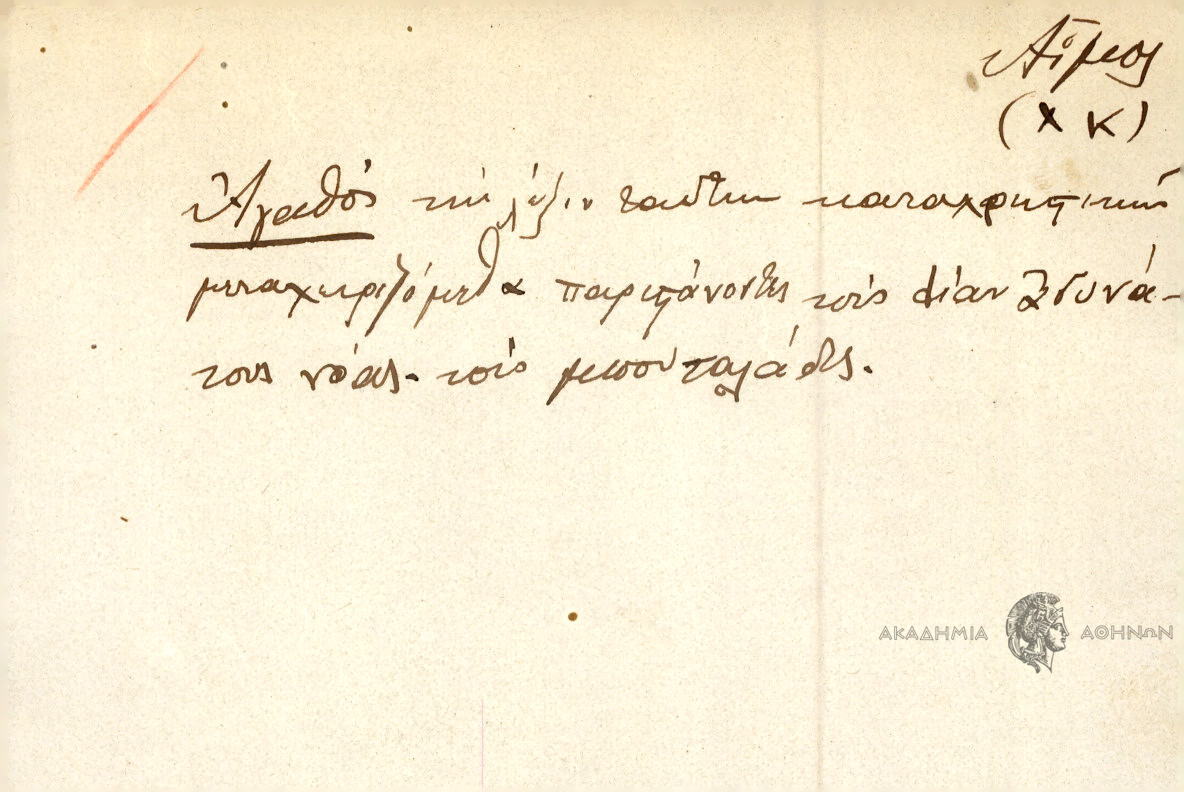 Αἶμος
(Χ Κ)
Ἀγαθός τὴν λέξιν ταύτην καταχρηστικῶς
μεταχειριζόμεθα παριστάνοντες τοὺς λίαν ἀδυνά-
τους νόας. τοὺς μπουταλάδες.
ΑΚΑΔΗΜΙΑ ΑΘΗΝΩΝ